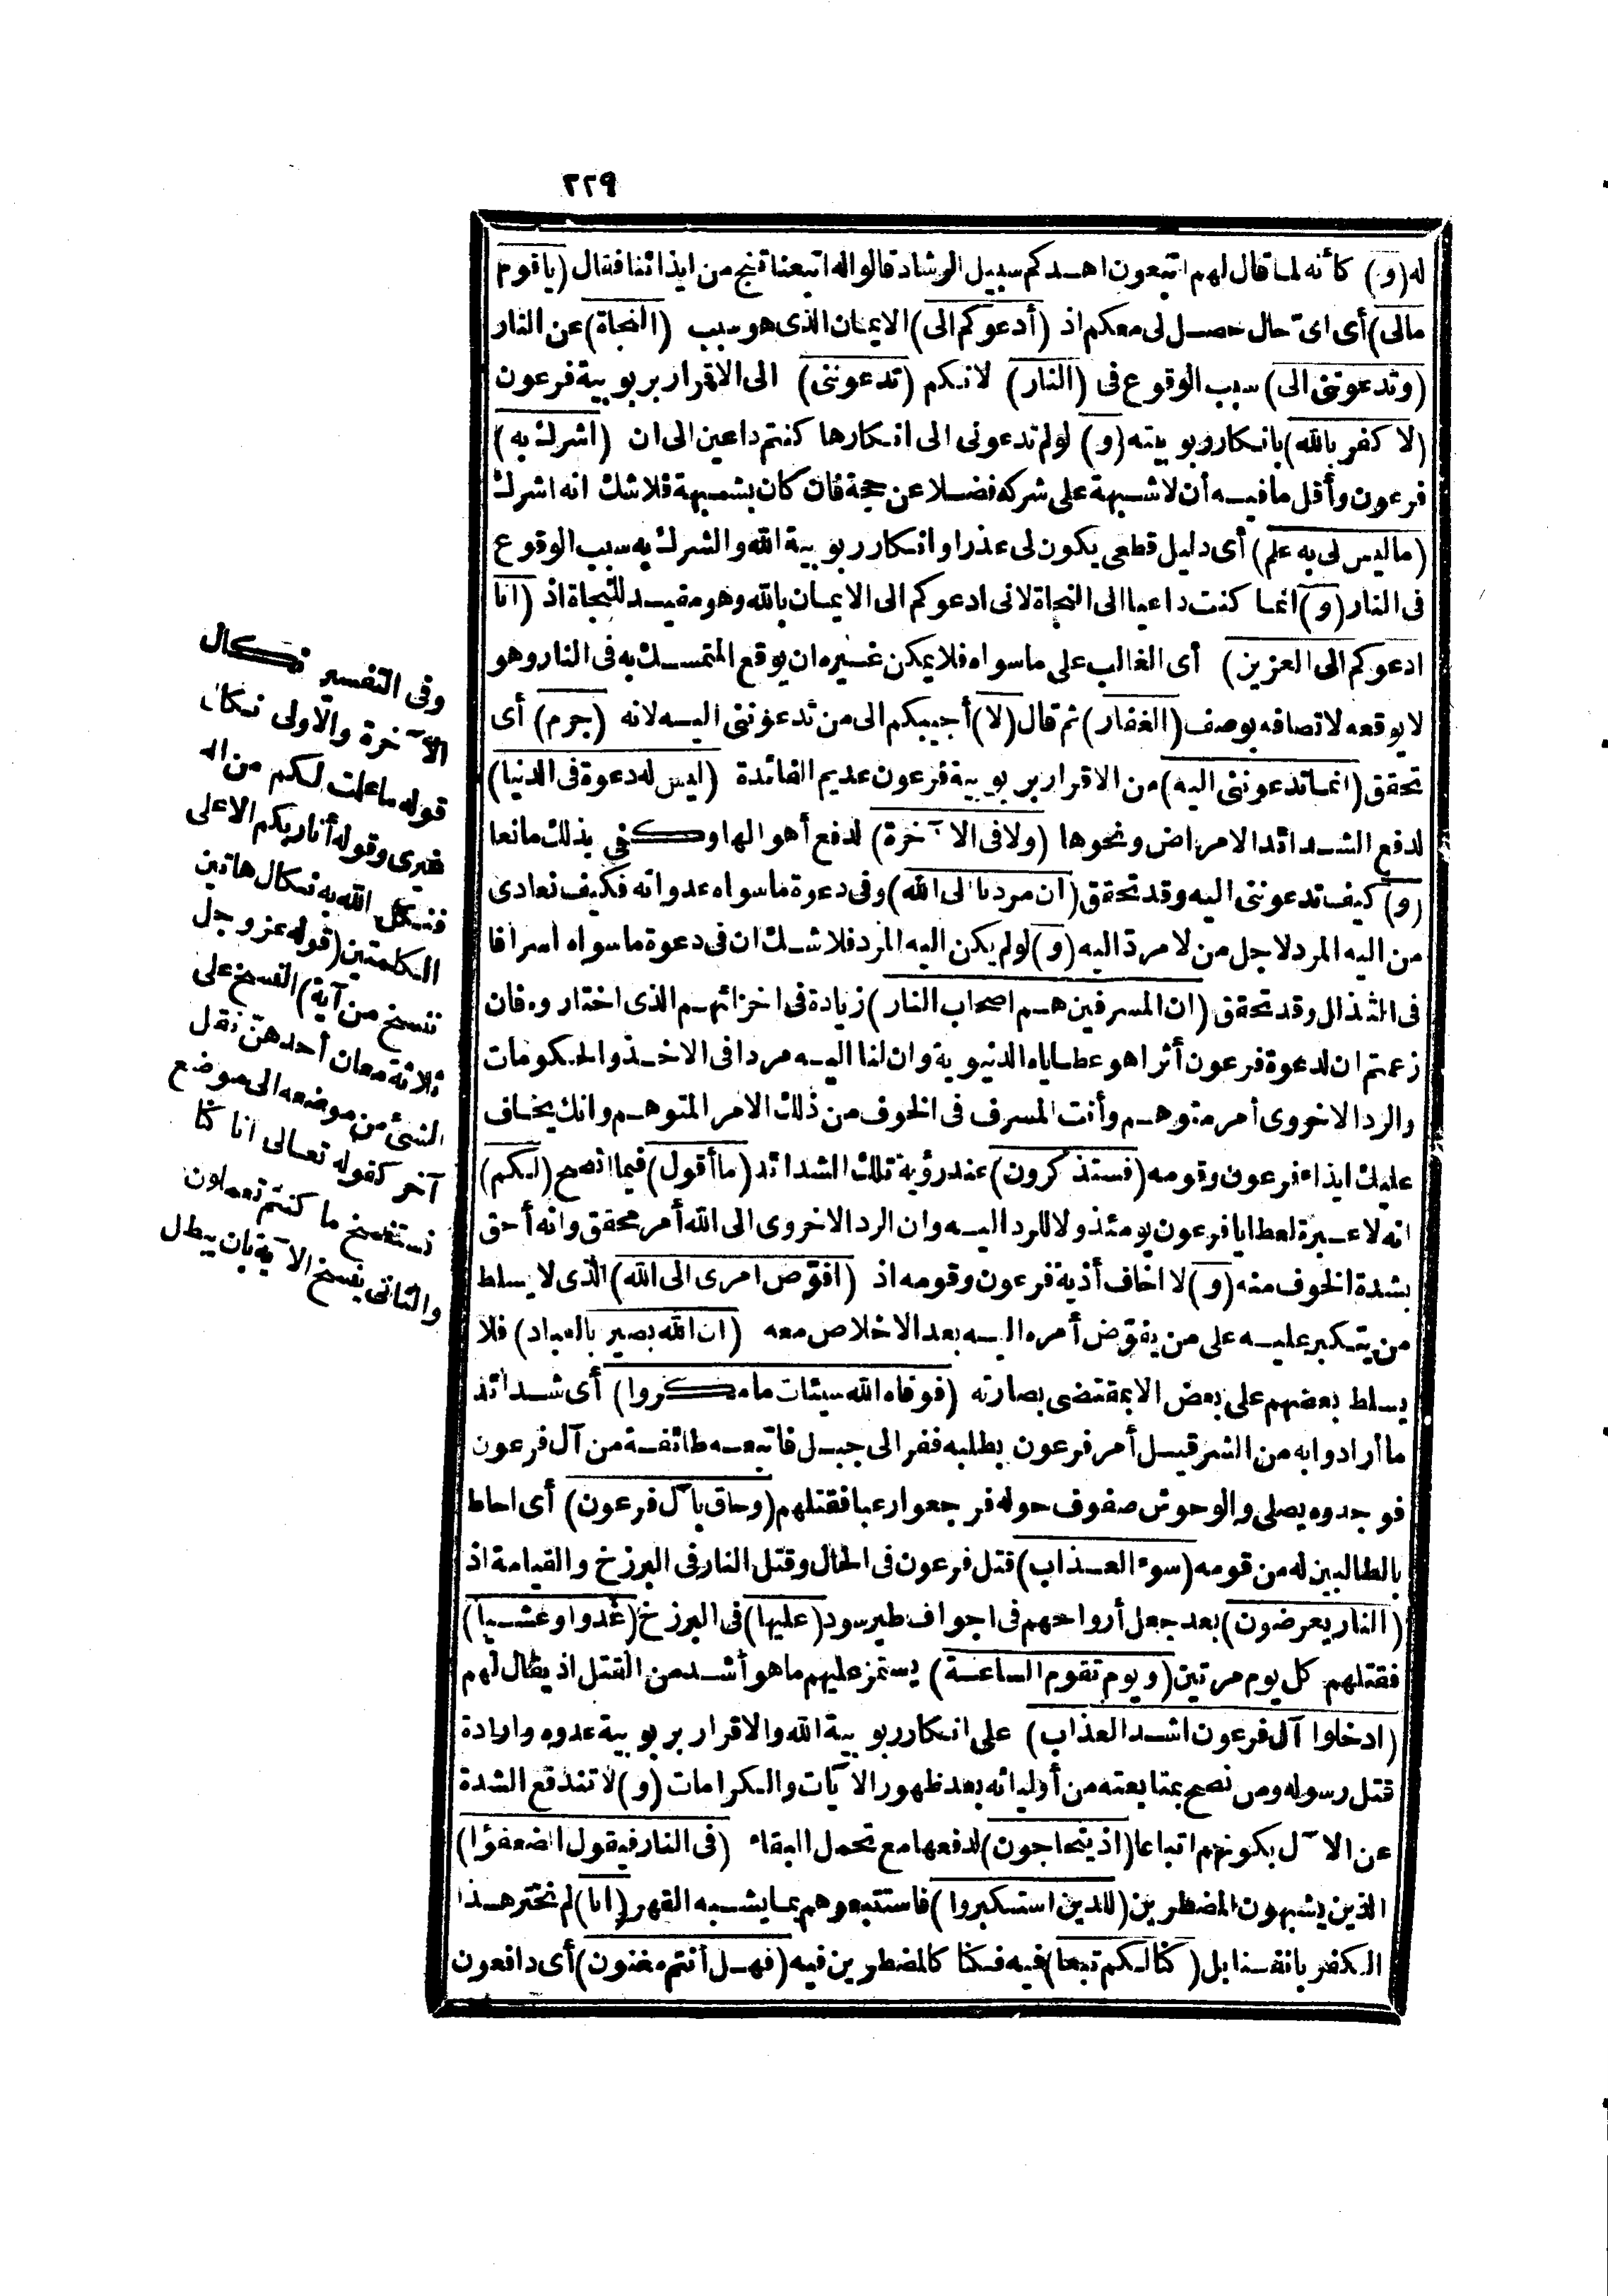 ٢٢٩
له (و) كأنه لما قال لهم اتبعون اهدكم سبيل الرشاد قالوا له اتبعنا تنج من ايذائنا فقال (ياقوم
مالى) أى اىّ حال حصل لى معكم اذ (أدعوكم الى) الايمان الذى هو سبب (النجاة) عن النار
(وتدعوننى الى) سبب الوقوع فى (النار) لانكم (تدعوننى) الى الاقرار بربوبية فرعون
(لا كفر بالله) بانكار ربوبيته (و) لو لم تدعونى الى انكارها كنتم داعين الى ان (اشرك به)
فرعون وأقل ما فيه أن لا شبهة على شركه فضلا عن حجة فان كان بشبهة فلا شك انه اشرك
(ما ليس لى به علم) أى دليل قطعى يكون لى عذرا وانكار ربوبية الله والشرك به سبب الوقوع
فى النار (و) انما كنت داعيا الى النجاة لانى ادعوكم الى الايمان بالله وهو مفيد للنجاة اذ (انا
ادعوكم الى العزيز) أى الغالب على ما سواه فلا يمكن غيره ان يوقع المتمسك به فى النار وهو
لا يوقعه لاتصافه بوصف (الغفار) ثم قال (لا) أجيبكم الى من تدعوننى اليه لانه (جرم) أى
تحقق (انما تدعوننى اليه) من الاقرار بربوبية فرعون عديم الفائدة (ليس له دعوة فى الدنيا)
لدفع الشدائد الامراض ونحوها (ولا فى الآخرة) لدفع أهوالها وكفى بذلك مانعا
(و) كيف تدعوننى اليه وقد تحقق (ان مردنا الى الله) وفى دعوة ما سواه عداوته فكيف نعادى
من اليه المرد لاجل من لا مردّ اليه (و) لو لم يكن اليه المرد فلا شك ان فى دعوة ما سواه اسرافا
فى التذلل وقد تحقق (ان المسرفين هم اصحاب النار) زيادة فى اخزائهم الذى اختاروه فان
زعمتم ان لدعوة فرعون أثرا هو عطاياه الدنيوية وان لنا اليه مردا فى الاخذ والحكومات
والرد الاخروى أمر متوهم وأنت المسرف فى الخوف من ذلك الامر المتوهم وانك يخاف
عليك ايذاء فرعون وقومه (فستذكرون) عند رؤية تلك الشدائد (ما أقول) فيما انصح (لكم)
انه لا عبرة لعطايا فرعون يومئذ ولا للرد اليه وان الرد الاخروى الى الله أمر محقق وانه أحق
بشدة الخوف منه (و) لا اخاف أذية فرعون وقومه اذ (افوّض امرى الى الله) الذى لا يسلط
من يتكبر عليه على من يفوّض أمره اليه بعد الاخلاص معه (ان الله بصير بالعباد) فلا
يسلط بعضهم على بعض الا بمقتضى بصارته (فوقاه الله سيئات ما مكروا) أى شدائد
ما أرادوا به من الشر قيل أمر فرعون بطلبه ففر الى جبل فاتبعه طائفة من آل فرعون
فوجدوه يصلى والوحوش صفوف حوله فرجعوا رعبا فقتلهم (وحاق بآل فرعون) أى احاط
بالطالبين له من قومه (سوء العذاب) قتل فرعون فى الحال وقتل النار فى البرزخ والقيامة اذ
(النار يعرضون) بعد جعل أرواحهم فى اجواف طير سود (عليها) فى البرزخ (غدوا وعشيا)
فقتلهم كل يوم مرتين (ويوم تقوم الساعة) يستمر عليهم ما هو أشد من القتل اذ يقال لهم
(ادخلوا آل فرعون اشد العذاب) على انكار ربوبية الله والاقرار بربوبية عدوه وارادة
قتل رسوله ومن نصح بمتابعته من أوليائه بعد ظهور الآيات والكرامات (و) لا تندفع الشدة
عن الآل بكونهم اتباعا (اذ يتحاجون) لدفعها مع تحمل البقاء (فى النار فيقول الضعفؤا)
الذين يشبهون المضطرين (للذين استكبروا) فاستتبعوهم بما يشبه القهر (انا) لم نختر هذا
الكفر بانفسنا بل (كنا لكم تبعا) فيه فكنا كالمضطرين فيه (فهل أنتم مغنون) أى دافعون
وفى التفسير نكال
الآخرة والاولى نكال
قوله ما علمت لكم من اله
غيرى وقوله أنا ربكم الاعلى
فنكل الله به نكال هاتين
الكلمتين (قوله عز وجل
ننسخ من آية) النسخ على
ثلاثة معان أحدهن نقل
الشئ من موضعه الى موضع
آخر كقوله تعالى انا كنا
نستنسخ ما كنتم تعملون
والثانى نسخ الآية بان يبطل